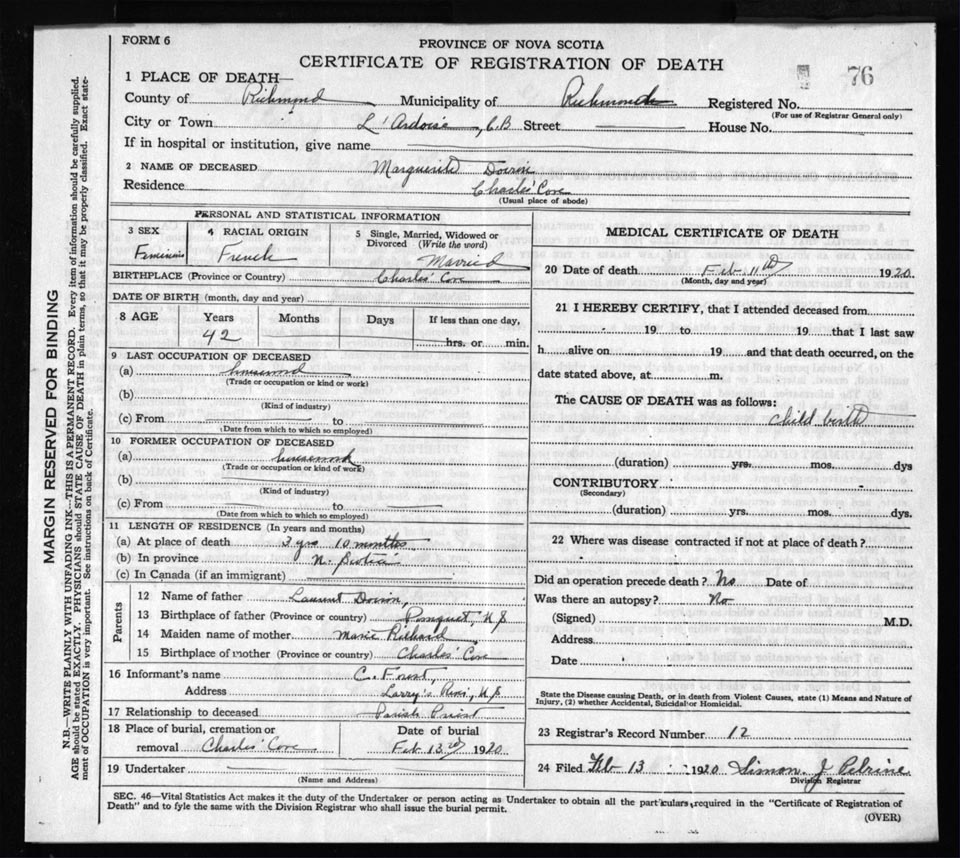 FORM 6
PROVINCE OF NOVA SCOTIA
CERTIFICATE OF REGISTRATION OF DEATH
76
1 PLACE OF DEATH—
County of Richmond Municipality of Richmond Registered No.
(For use of Registrar General only)
City or Town L'Ardoise, C.B Street House No.
If in hospital or institution, give name
2 NAME OF DECEASED Marguerite
Residence Charles' Cove
(Usual place of abode)
PERSONAL AND STATISTICAL INFORMATION
3 SEX 4 RACIAL ORIGIN 5 Single, Married, Widowed or Divorced (Write the word)
French Married
BIRTHPLACE (Province or Country) Charles' Cove
DATE OF BIRTH (month, day and year)
8 AGE Years Months Days If less than one day,
42 hrs. or min.
9 LAST OCCUPATION OF DECEASED
(a) housework
(Trade or occupation or kind or work)
(b)
(Kind of industry)
(c) From to
(Date from which to which so employed)
10 FORMER OCCUPATION OF DECEASED
(a) housework
(Trade or occupation or kind of work)
(b)
(Kind of industry)
(c) From to
(Date from which to which so employed)
11 LENGTH OF RESIDENCE (In years and months)
(a) At place of death 3 yrs 10 months
(b) In province N. Scotia
(c) In Canada (if an immigrant)
Parents
12 Name of father Laurent
13 Birthplace of father (Province or country) Pomquet, N S
14 Maiden name of mother Marie Richard
15 Birthplace of mother (Province or country) Charles' Cove
16 Informant's name C. Forest,
Address Larry's River, N S
17 Relationship to deceased Parish Priest
18 Place of burial, cremation or removal Charles' Cove
Date of burial
Feb 13 1920
19 Undertaker
(Name and Address)
MEDICAL CERTIFICATE OF DEATH
20 Date of death Feb 11th 1920
(Month, day and year)
21 I HEREBY CERTIFY, that I attended deceased from
19 to 19 that I last saw
h alive on 19 and that death occurred, on the
date stated above, at m.
The CAUSE OF DEATH was as follows:
child birth
(duration) yrs. mos. dys
CONTRIBUTORY
(Secondary)
(duration) yrs. mos. dys.
22 Where was disease contracted if not at place of death?
Did an operation precede death? No Date of
Was there an autopsy? No
(Signed) M.D.
Address
Date
State the Disease causing Death, or in death from Violent Causes, state (1) Means and Nature of
Injury, (2) whether Accidental, Suicidal or Homicidal.
23 Registrar's Record Number 12
24 Filed Feb 13 1920 Simon J Pelrine
Division Registrar
SEC. 46—Vital Statistics Act makes it the duty of the Undertaker or person acting as Undertaker to obtain all the particulars required in the "Certificate of Registration of
Death" and to fyle the same with the Division Registrar who shall issue the burial permit.
(OVER)
MARGIN RESERVED FOR BINDING
N.B.—WRITE PLAINLY WITH UNFADING INK—THIS IS A PERMANENT RECORD. Every item of information should be carefully supplied.
AGE should be stated EXACTLY. PHYSICIANS should STATE CAUSE OF DEATH in plain terms, so that it may be properly classified. Exact state-
ment of OCCUPATION is very important. See instructions on back of Certificate.